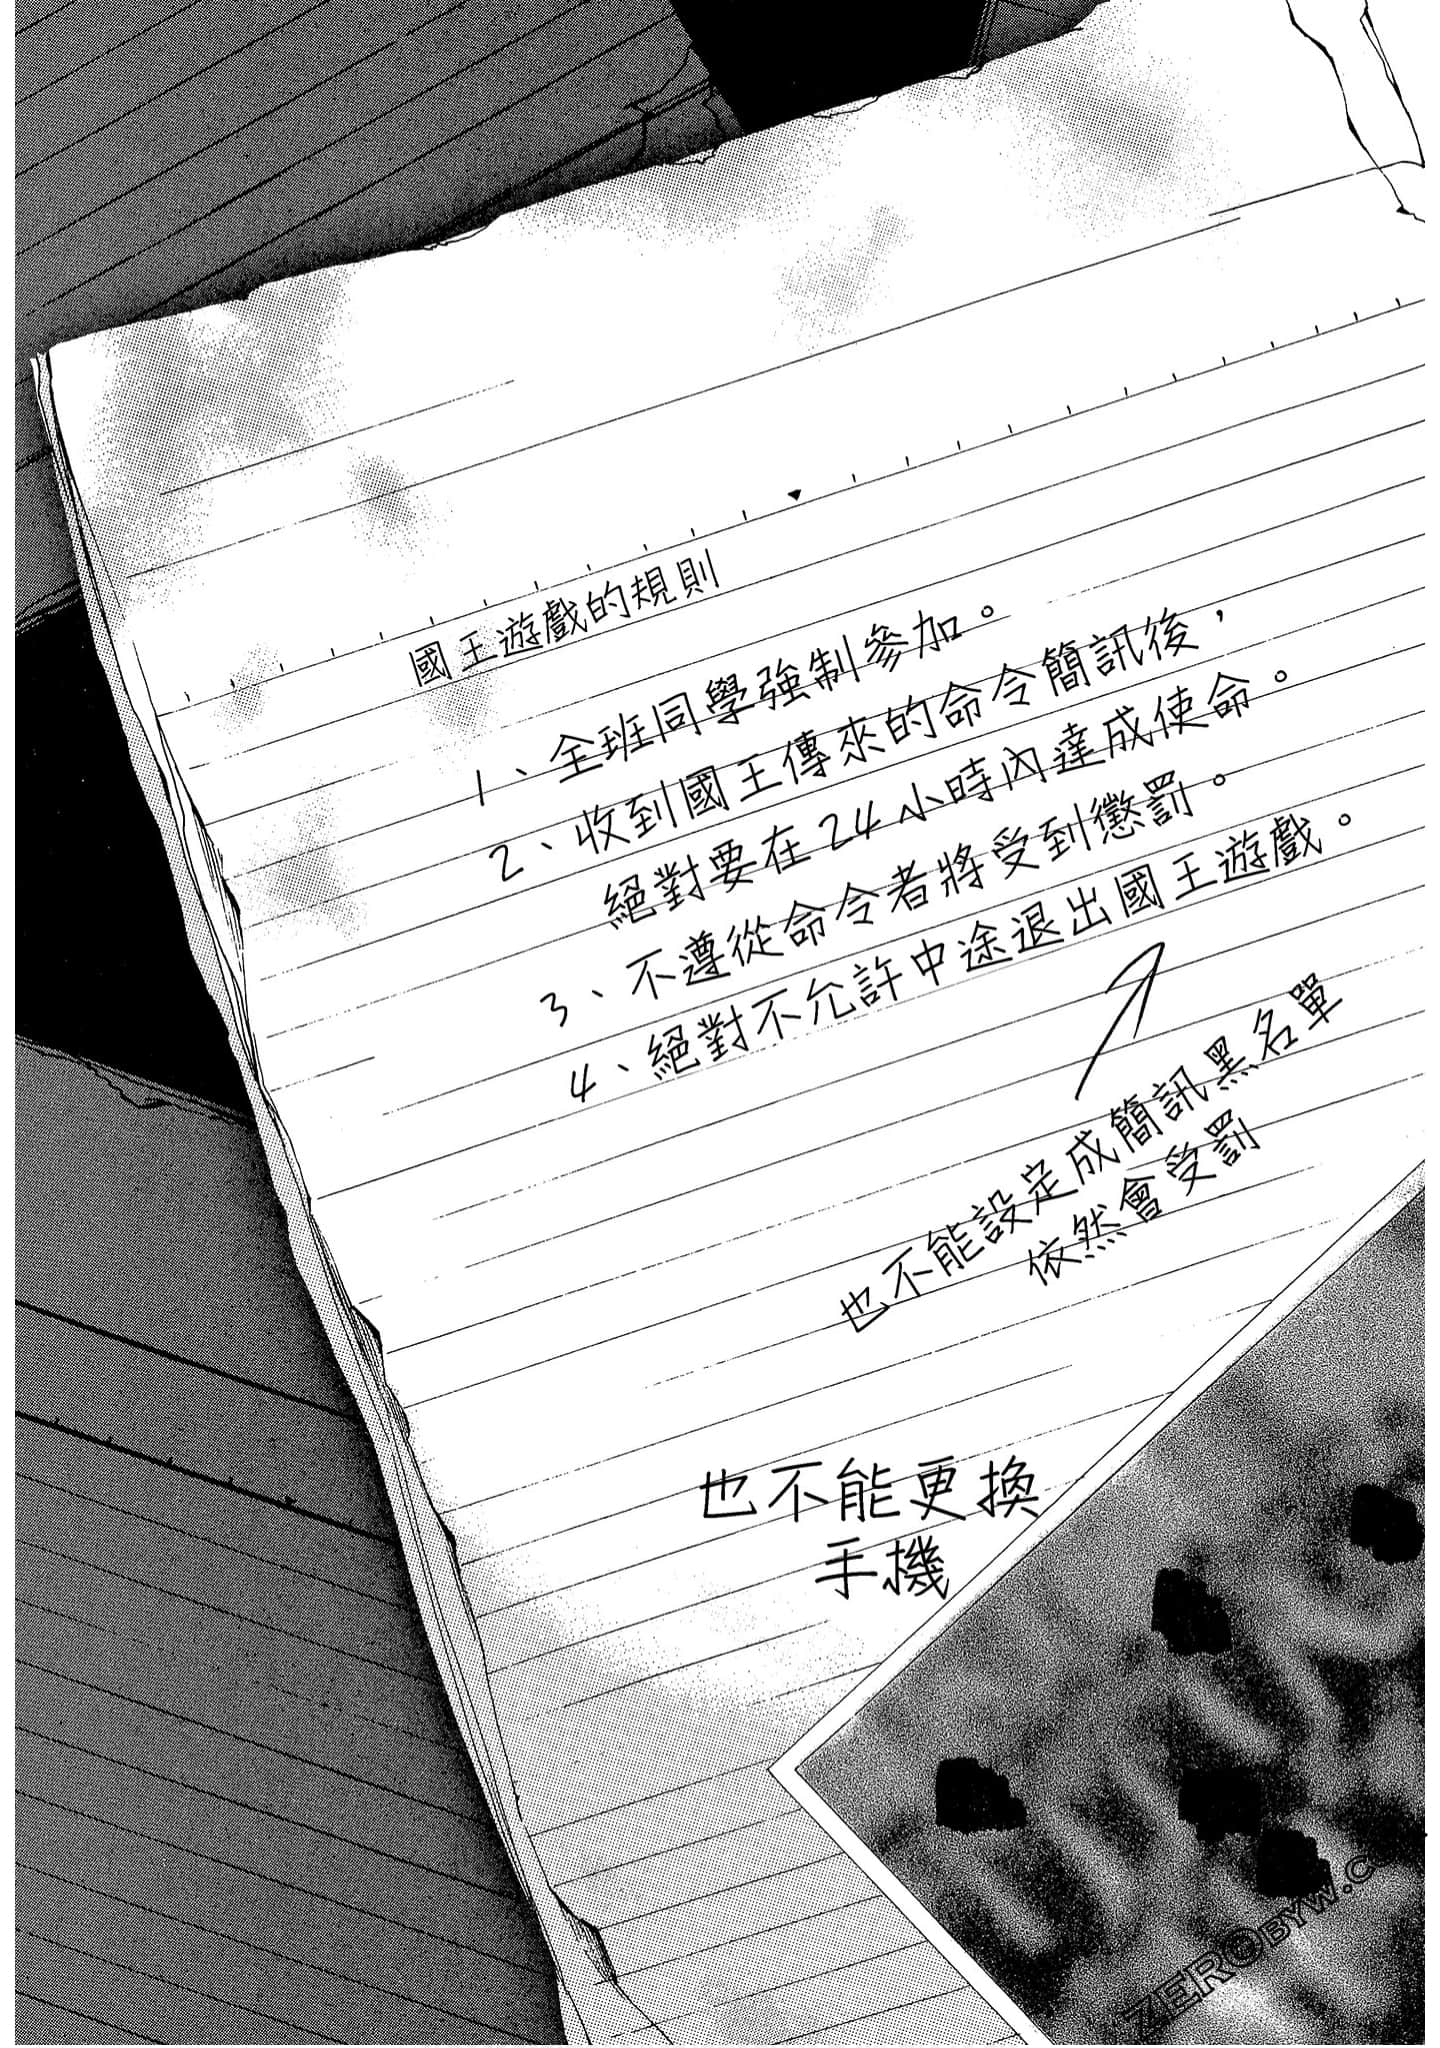 國王遊戲的規則
1、全班同學強制參加。
2、收到國王傳來的命令簡訊後，
絕對要在24小時內達成使命。
3、不遵從命令者將受到懲罰。
4、絕對不允許中途退出國王遊戲。
也不能設定成簡訊黑名單
依然會受罰
也不能更換
手機
ZEROBYW.C